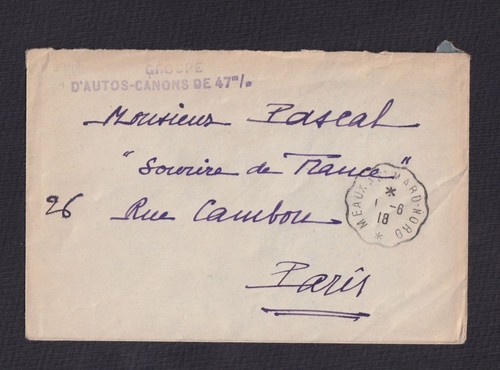 GROUPE
D'AUTOS-CANONS DE 47m/m
Monsieur Pascal
"Sourire de France"
26 Rue Cambon
Paris
MEAUX NORD
1-6
18